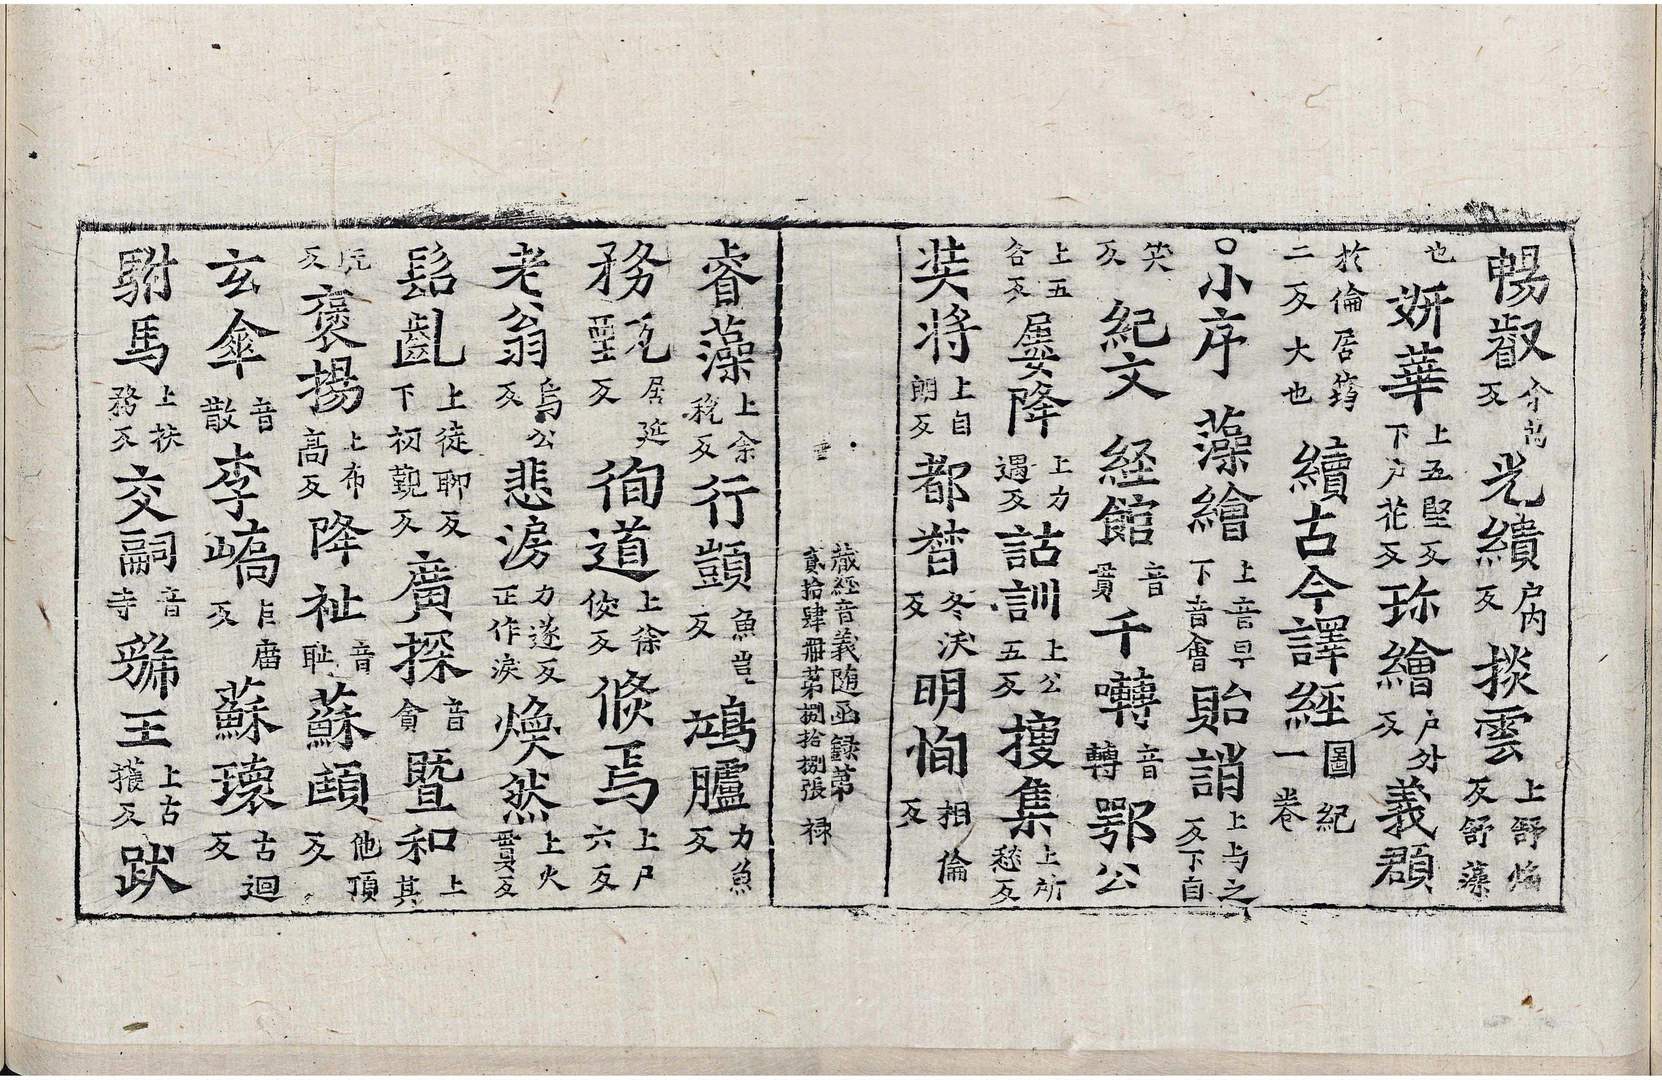 暢叡余芮反光繢户内反掞雲上舒焰反舒藻
也妍華上五堅反下户花反珎繪户外反義羣
於倫居筠二反大也續古今譯經圖紀一卷
○小序藻繪上音早下音會貽誚上与之反下自
笑反紀文経館音貫千囀音轉鄂公
上五各反屢降上力遇反詁訓上公五反搜集上所愁反
奘将上自朗反都督冬沃反明恂相倫反
藏經音義随函録第貳拾肆冊苐捌拾捌張禄
睿藻上余稅反行顗魚豈反鴻臚力魚反
務甄居延反徇道上徐俊反倏焉上尸六反
老翁烏公反悲淚力遂反正作淚煥然上火貫反
髫齓上徒聊反下初覲反廣探音貪暨和上其
反褒揚上布高反降祉音耻蘇頲他頂反
玄傘音散李嶠反蘇瓌古迴反
駙馬上扶務反交嗣音寺虢王上古擭反跋